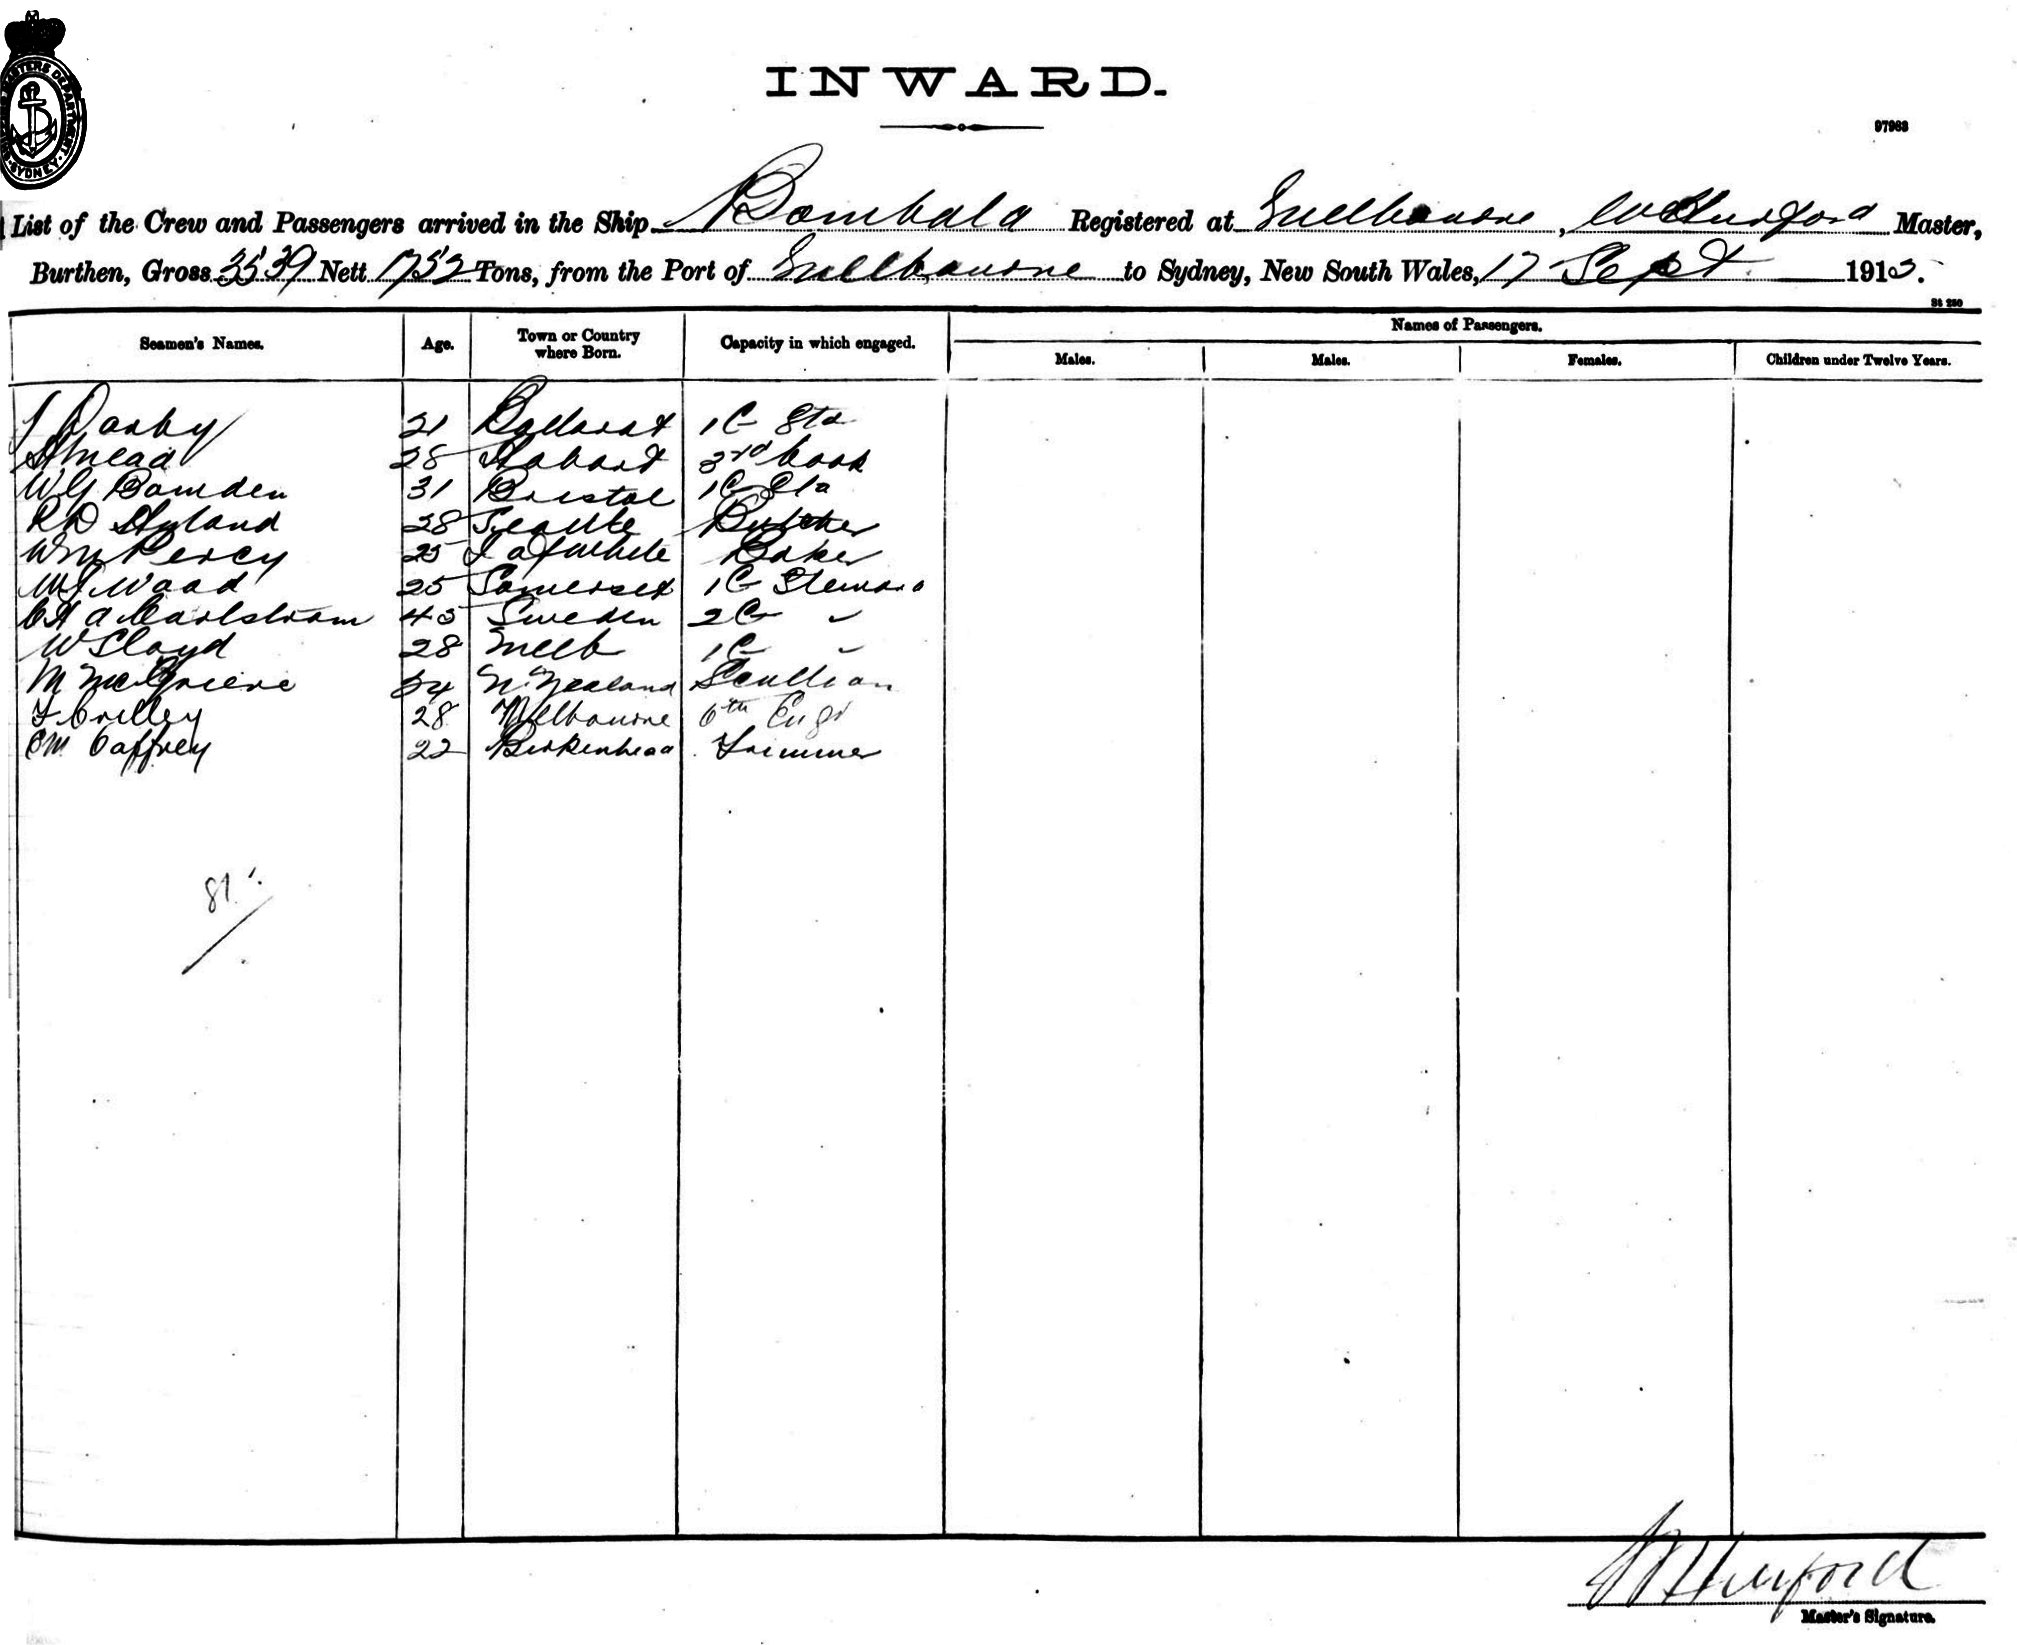 SHIPPING MASTERS DEPARTMENT · SYDNEY ·
INWARD.
97963
List of the Crew and Passengers arrived in the Ship Bombala Registered at Melbourne, Hurford Master,
Burthen, Gross 3539 Nett 1752 Tons, from the Port of Melbourne to Sydney, New South Wales, 17 Sept 1913.
St 250
Seamen's Names. Age. Town or Country where Born. Capacity in which engaged. Names of Passengers.
Males. Males. Females. Children under Twelve Years.
Darby 21 Ballarat 1 C Std
Mead 28 Hobart 3rd Cook
W G Bamden 31 Bristol 1 C
R D Hyland 28 Seattle Butcher
Wm Percy 25 Baker
W J Wood 25 Somerset 1 C Steward
C H A Carlstrom 45 Sweden 2 C "
W Lloyd 28 Melb 1 C "
M McGrieve 34 N. Zealand Scullion
F Crilley 28 Melbourne 6th Engr
C M Caffrey 22 Birkenhead Trimmer
81
Hurford
Master's Signature.